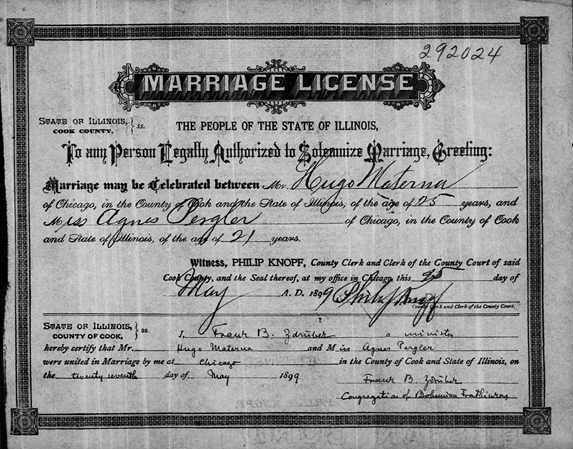 292024
MARRIAGE LICENSE
STATE OF ILLINOIS, COOK COUNTY, } ss.
THE PEOPLE OF THE STATE OF ILLINOIS,
To any Person Legally Authorized to Solemnize Marriage, Greeting:
Marriage may be Celebrated between Mr. Hugo Materna
of Chicago, in the County of Cook and the State of Illinois, of the age of 25 years, and
Miss Agnes Pergler of Chicago, in the County of Cook
and State of Illinois, of the age of 21 years.
Witness, PHILIP KNOPF, County Clerk and Clerk of the County Court of said
Cook County, and the Seal thereof, at my office in Chicago, this 25 day of
May A. D. 1899 Philip Knopf
County Clerk and Clerk of the County Court.
STATE OF ILLINOIS, COUNTY OF COOK, } ss. I, B. a minister
hereby certify that Mr. Hugo Materna and Miss Agnes Pergler
were united in Marriage by me at Chicago in the County of Cook and State of Illinois, on
the twenty seventh day of May 1899
B.
Congregation of Bohemian